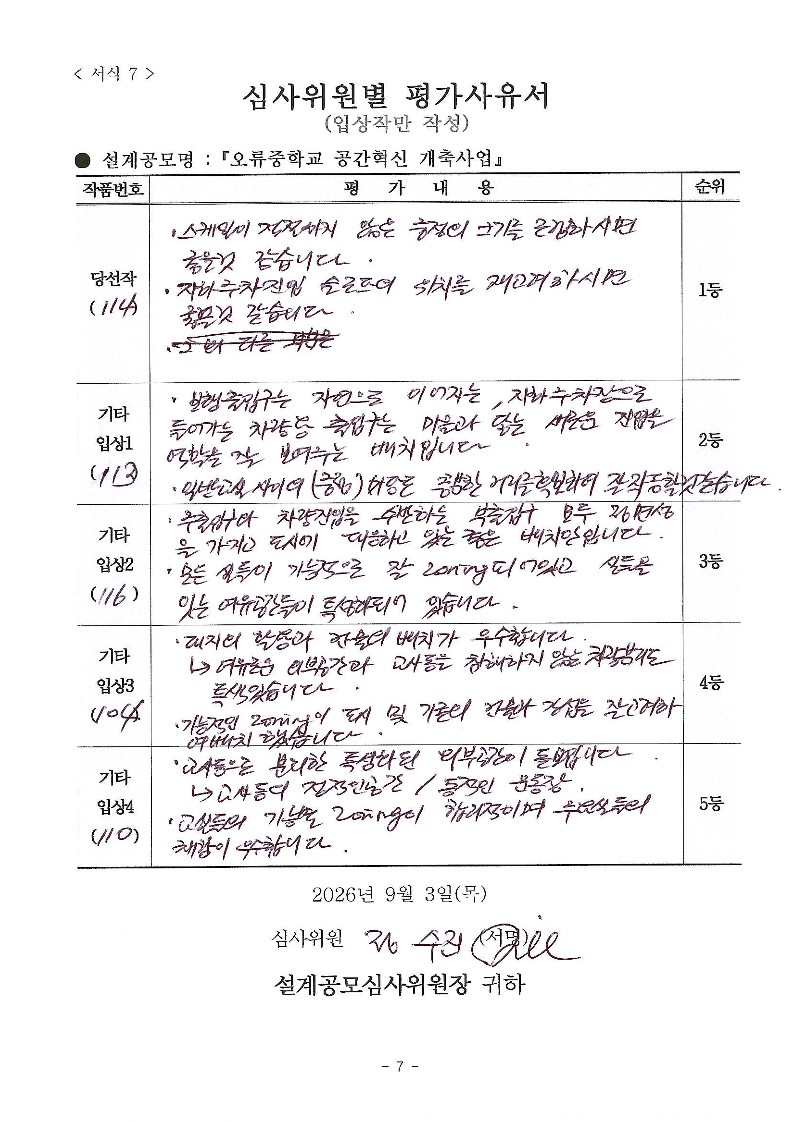 < 서식 7 >
심사위원별 평가사유서
(입상작만 작성)
● 설계공모명 : 『오류중학교 공간혁신 개축사업』
작품번호 평 가 내 용 순위
당선작
(114)
· 스케일이 적절하지 않은 중정의 크기를
좋을것 같습니다 .
· 지하주차진입 위치를 재고려하시면
좋을것 같습니다 .
1등
기타
입상1
(113)
· 보행출입구는 자연으로 이어지는, 지하주차장으로
들어가는 차량 출입구는 마을과 닿는 새로운 진입을
역할을 잘 보여주는 배치입니다 .
· 일반교실 사이의 (중정) 마당은 적당한 거리를 확보하여 잘 작동할것 같습니다 .
2등
기타
입상2
(116)
· 주출입구와 차량진입을 수반하는 부출입구 모두 정면성
을 가지고 도시에 대응하고 있는 좋은 배치안입니다 .
· 모든 실들이 기능적으로 잘 zoning되어있고 실들을
잇는 여유공간들이 특성화되어 있습니다 .
3등
기타
입상3
(104)
· 대지의 활용과 건물의 배치가 우수합니다 .
↳ 여유로운 외부공간과 교사동을 침해하지 않는 차량분리도
특색있습니다 .
· 기능적인 zoning이 도시 및 가로의 건물과 접점을 잘 고려하
여 배치 했습니다 .
4등
기타
입상4
(110)
· 교사동으로 분리한 특성화된 외부공간이 돋보입니다 .
↳ 교사동의 정적인공간 / 동적인 운동장 .
· 교실들의 기능별 zoning이 합리적이며
채광이 우수합니다 .
5등
2026년 9월 3일(목)
심사위원 정 수진 (서명)
설계공모심사위원장 귀하
- 7 -